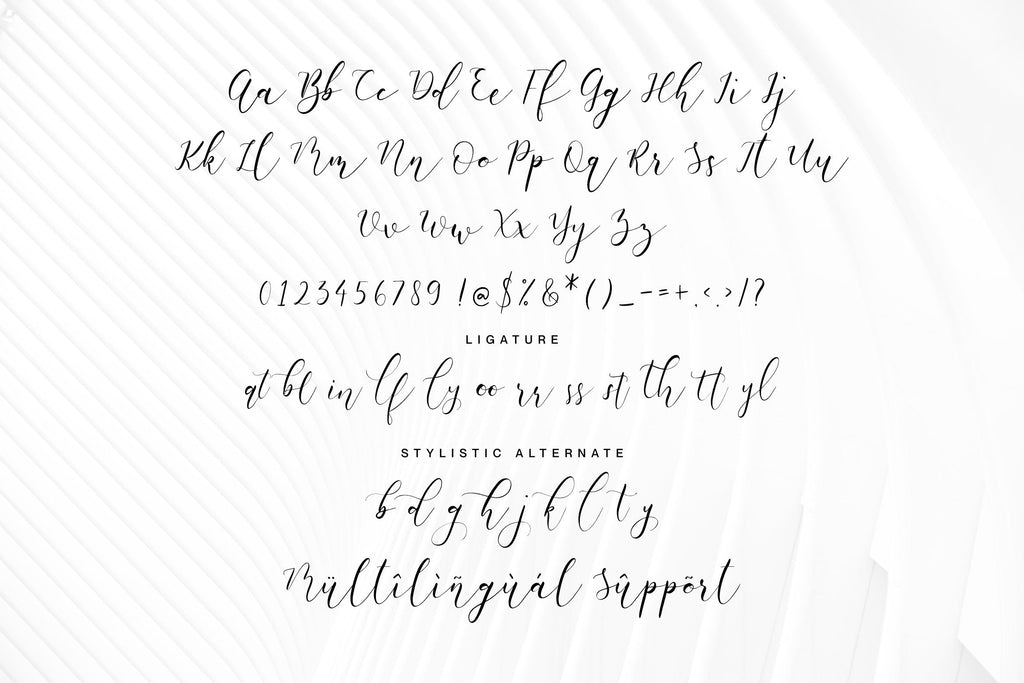 Aa Bb Cc Dd Ee Ff Gg Hh Ii Jj
Kk Ll Mm Nn Oo Pp Qq Rr Ss Tt Uu
Vv Ww Xx Yy Zz
0123456789 !@$%&*()_-=+.<.>/?
LIGATURE
at bl in lf ly oo rr ss st th tt yl
STYLISTIC ALTERNATE
b d g h j k l t y
Mültîlìñgùál Sûppõrt